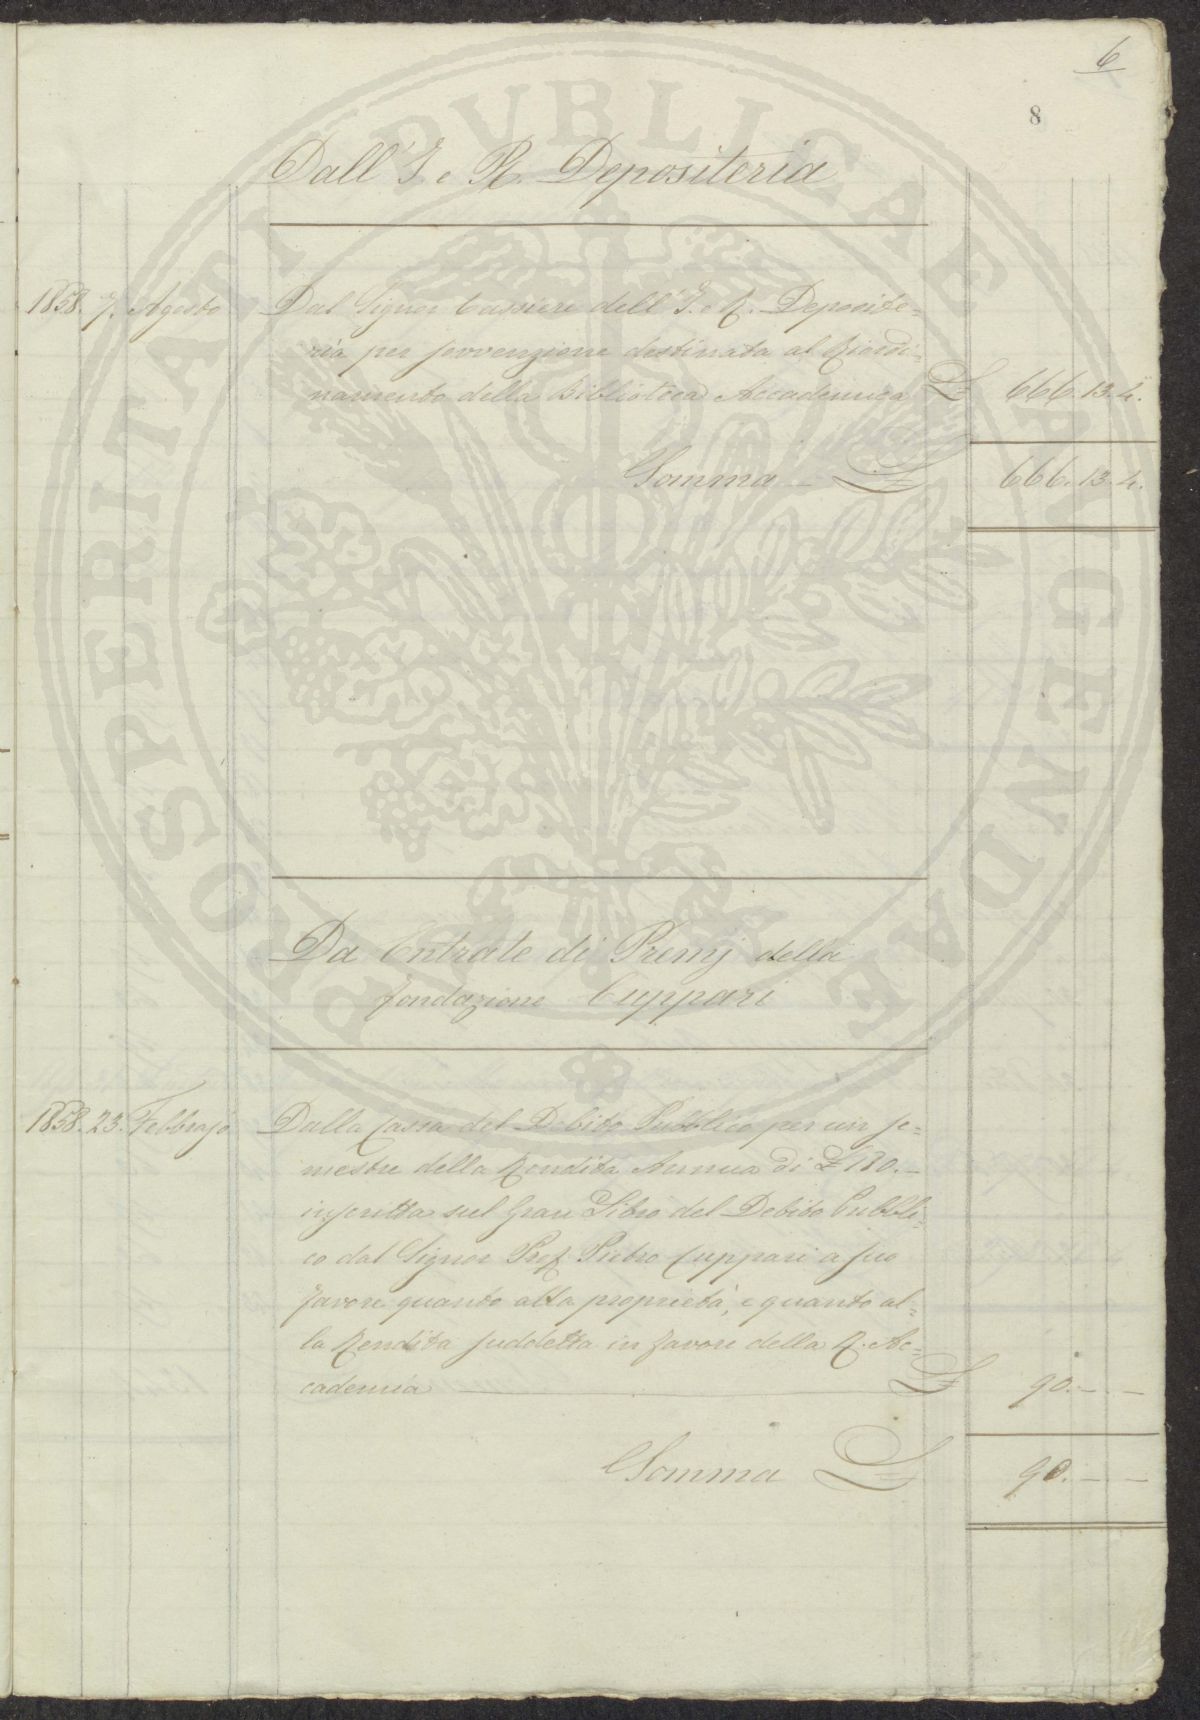 6
8
Dall' I. e R. Depositeria
1858. 7. Agosto Dal Signor Cassiere dell' I. e R. Deposite=
ria per sovvenzione destinata al Riordi=
namento della Biblioteca Accademica £ 666. 13. 4.
Somma £ 666. 13. 4.
Da Entrate di Premj della
fondazione Cuppari
1858. 23. Febbrajo Dalla Cassa del Debito Pubblico per un se=
mestre della Rendita Annua di £ 180. —
inscritta sul Gran Libro del Debito Pubbli=
co dal Signor Prof. Pietro Cuppari a suo
favore quanto alla proprietà, e quanto al=
la Rendita suddetta in favore della R. Ac=
cademia £ 90. — —
Somma £ 90. — —
PROSPERITATI PVBLICAE AVGENDAE